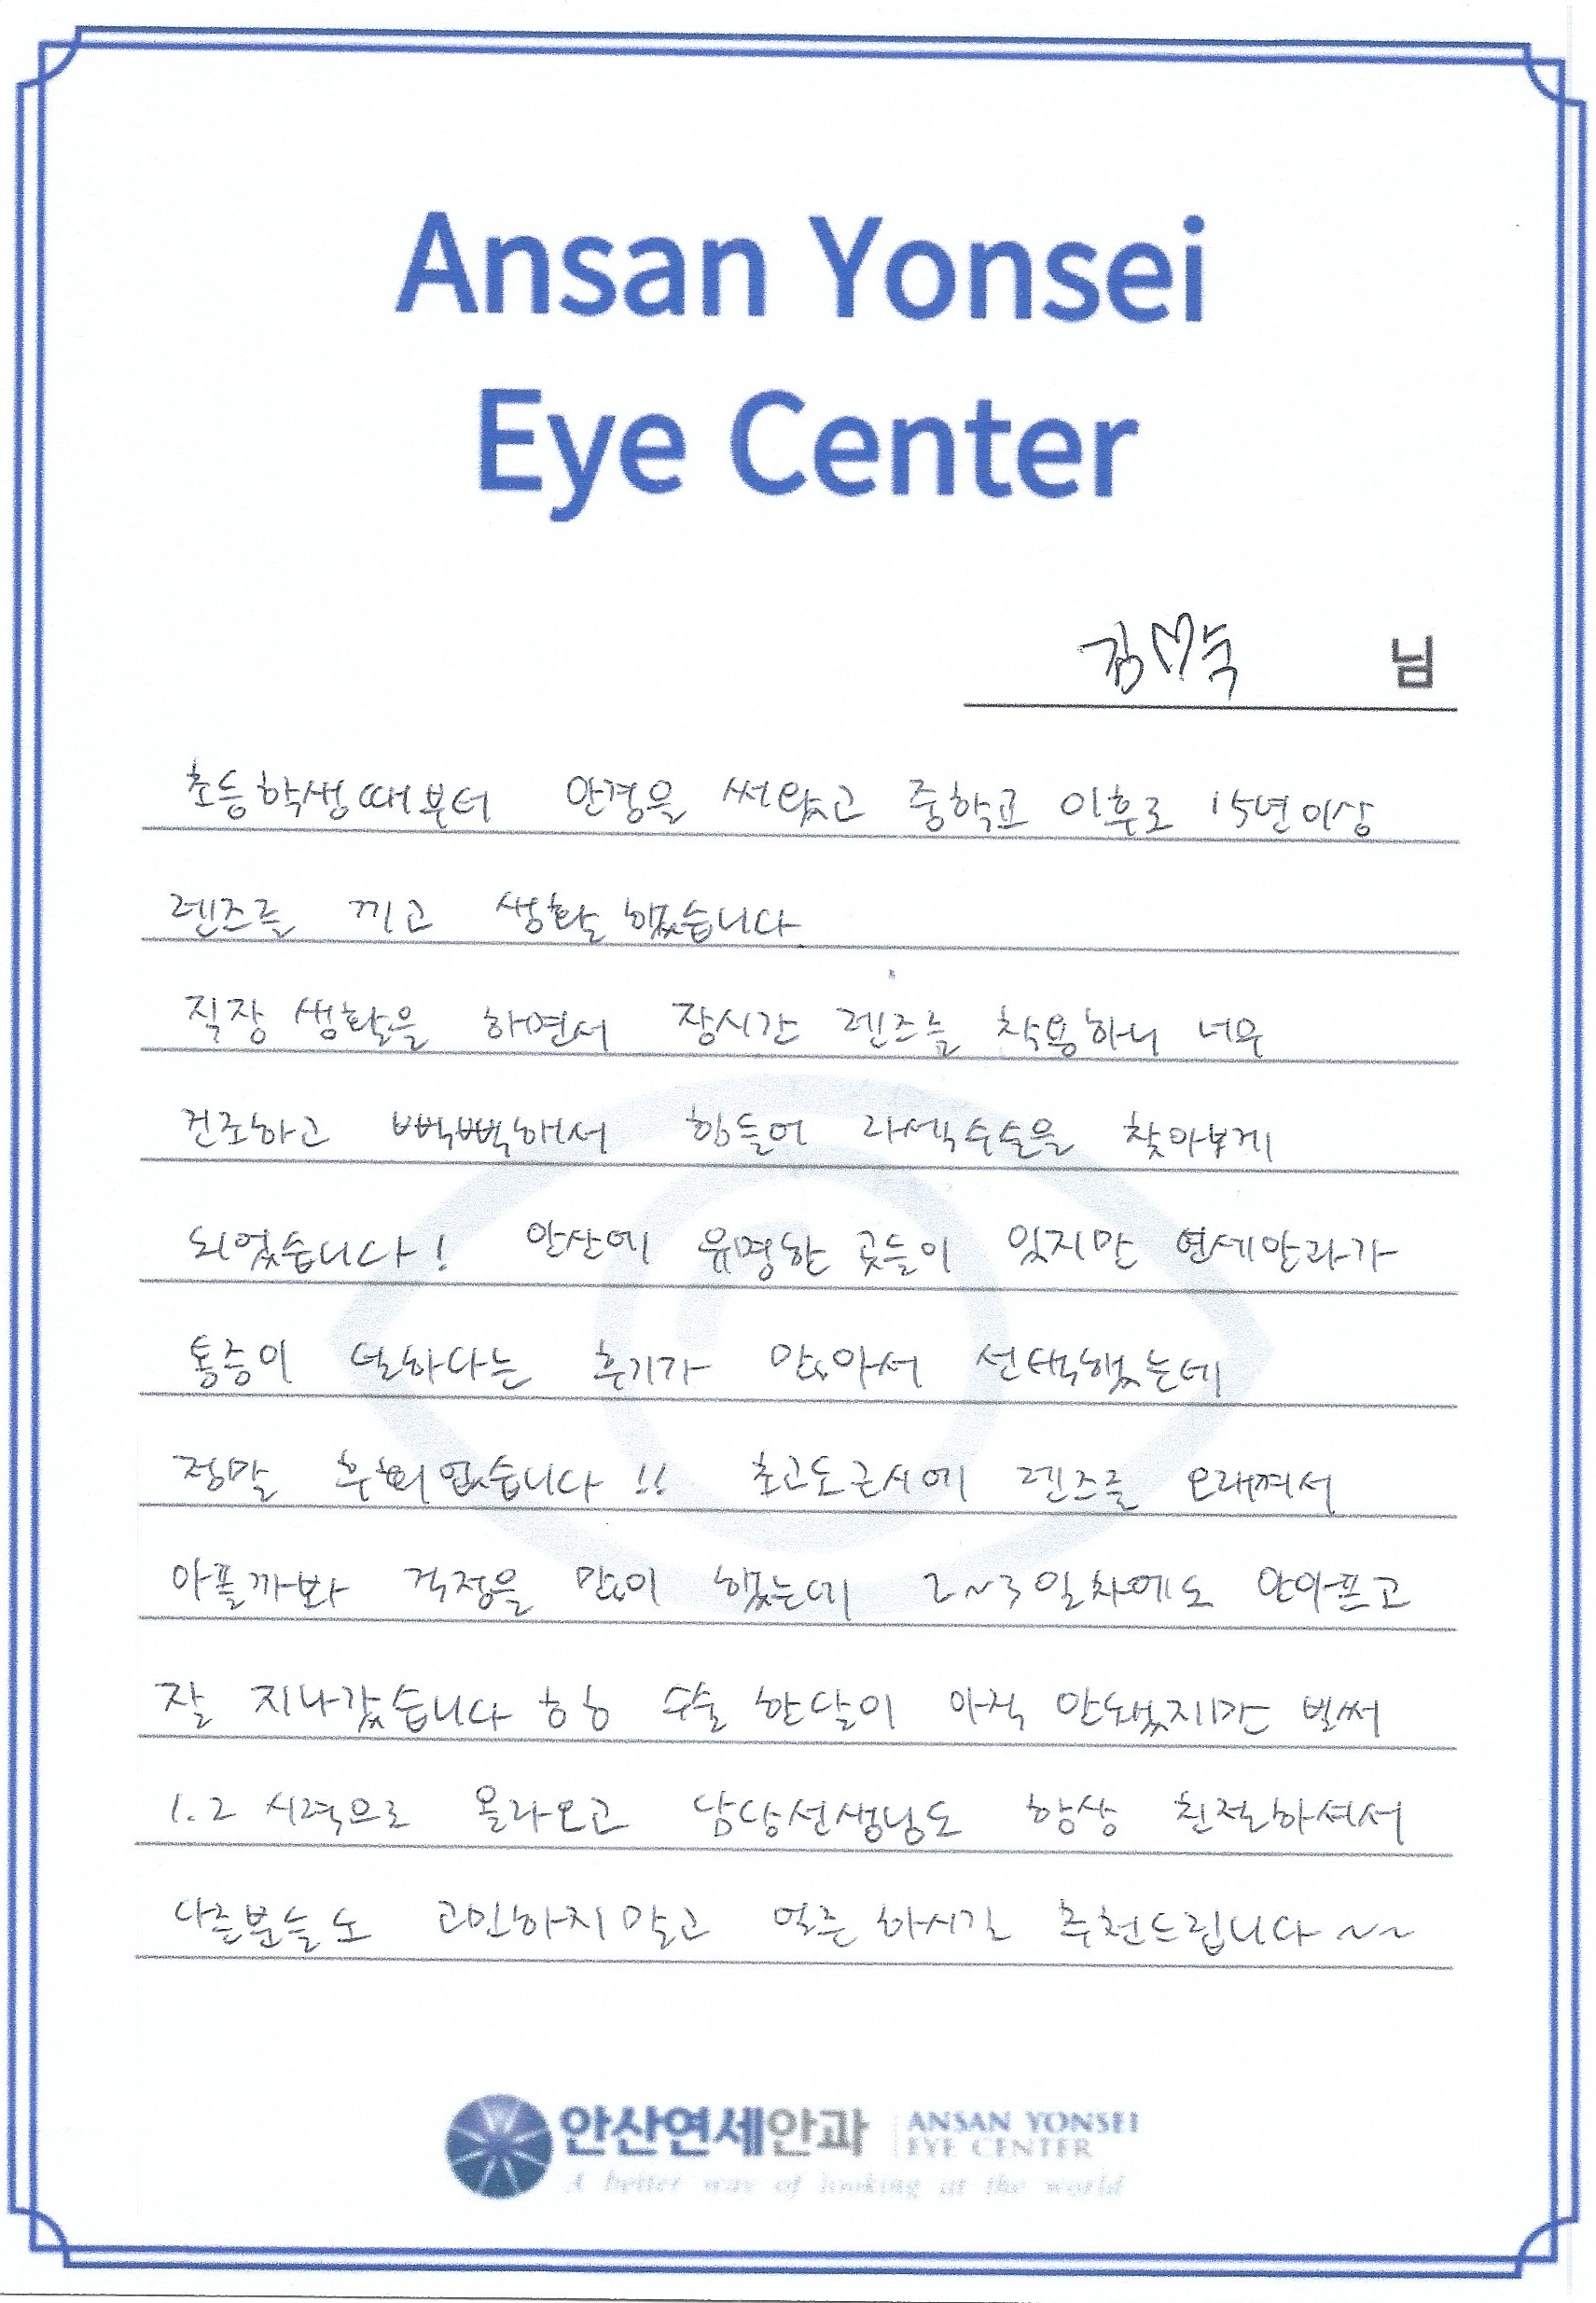 Ansan Yonsei
Eye Center
김♡숙 님
초등학생때부터 안경을 써왔고 중학교 이후로 15년이상
렌즈를 끼고 생활했습니다
직장 생활을 하면서 장시간 렌즈를 착용하니 너무
건조하고 뻑뻑해서 힘들어 라섹수술을 찾아보게
되었습니다! 안산에 유명한 곳들이 있지만 연세안과가
통증이 덜하다는 후기가 많아서 선택했는데
정말 후회없습니다!! 초고도근시에 렌즈를 오래껴서
아플까봐 걱정을 많이 했는데 2~3일차에도 안아프고
잘 지나갔습니다 ㅎㅎ 수술 한달이 아직 안됐지만 벌써
1.2 시력으로 올라오고 담당선생님도 항상 친절하셔서
다른분들도 고민하지말고 얼른 하시길 추천드립니다~~
안산연세안과 ANSAN YONSEI
EYE CENTER
A better way of looking at the world